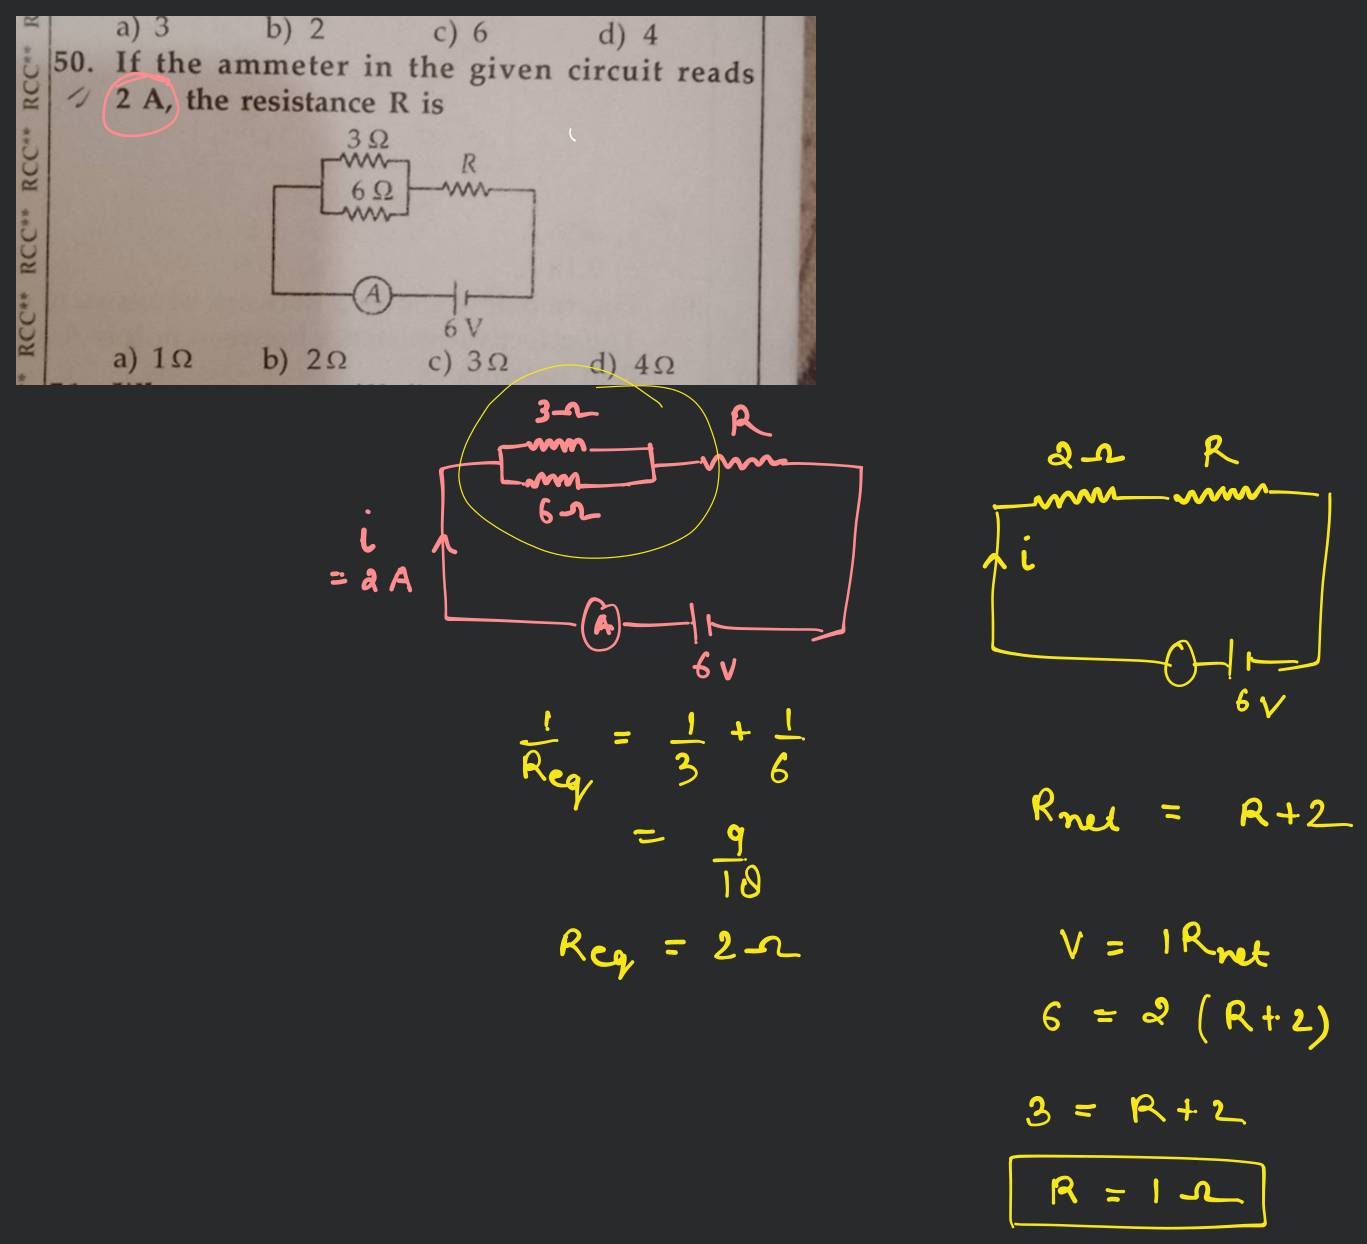 RCC** RCC** RCC** RCC** R
a) 3 b) 2 c) 6 d) 4
50. If the ammeter in the given circuit reads
2 A, the resistance R is
3 Ω
R
6 Ω
A
6 V
a) 1Ω b) 2Ω c) 3Ω d) 4Ω
3Ω
R
6Ω
i
= 2A
A
6V
1/Req = 1/3 + 1/6
= 9/18
Req = 2Ω
2Ω R
i
6V
Rnet = R+2
V = IRnet
6 = 2 (R+2)
3 = R+2
R = 1Ω